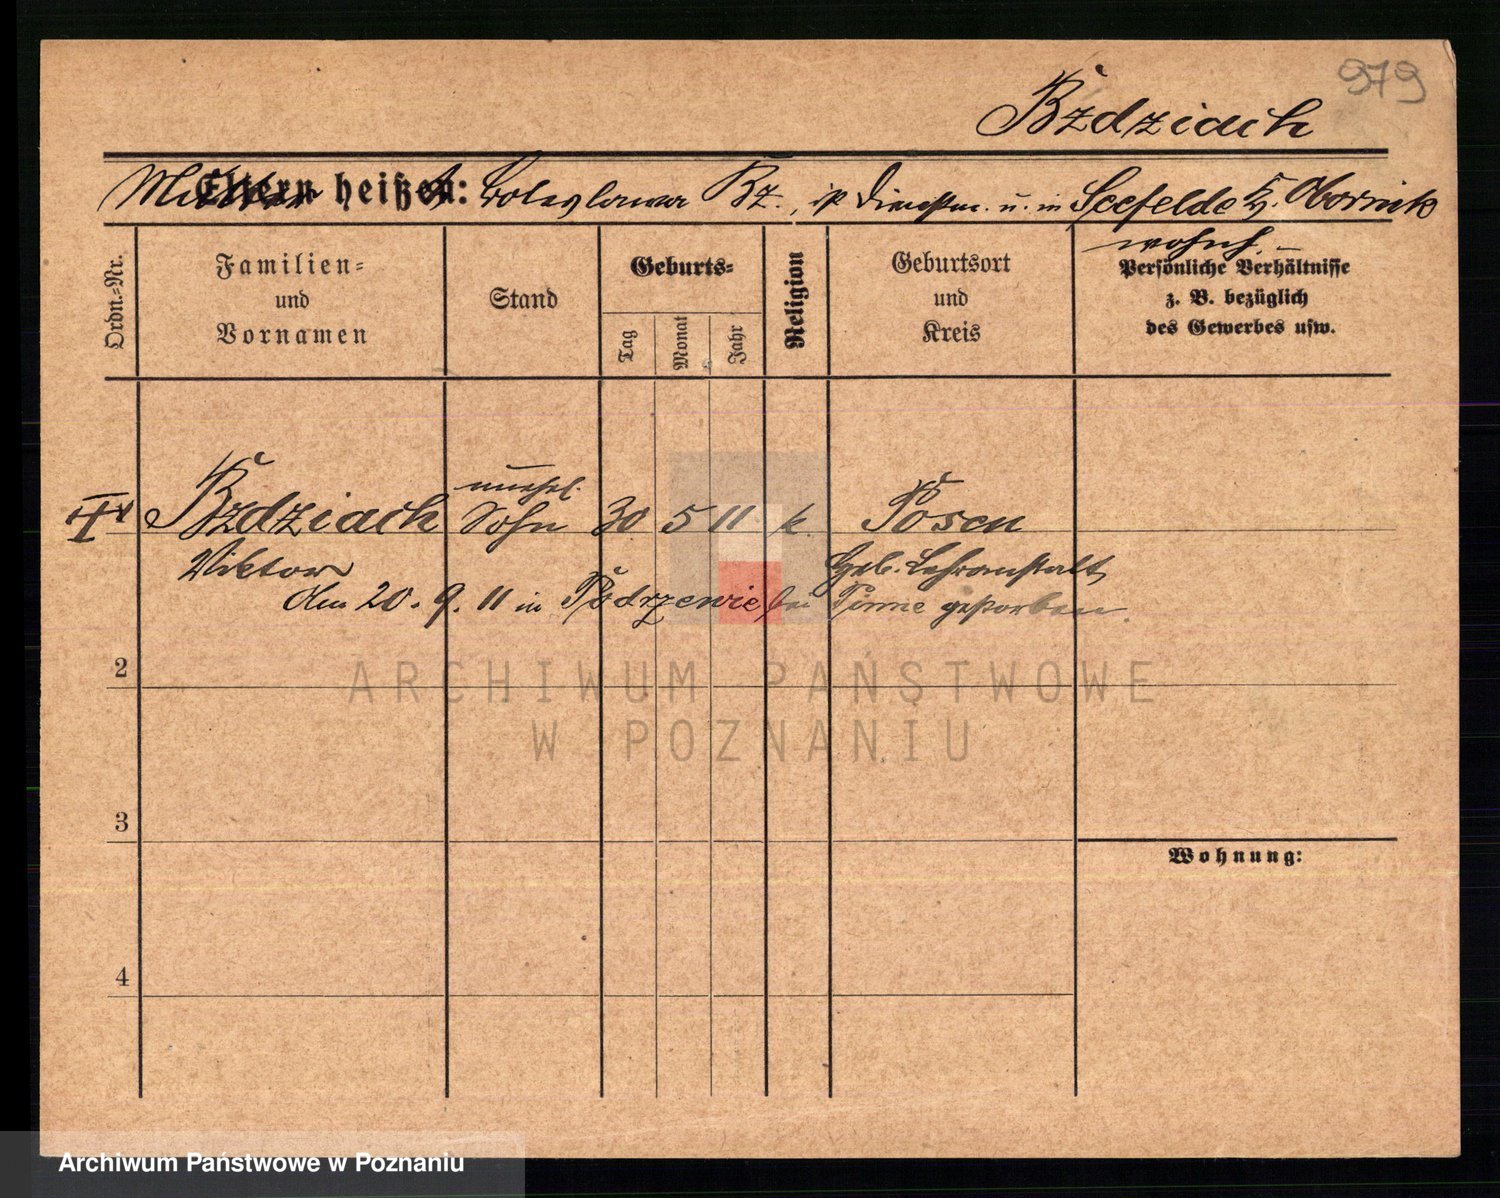 979
Bzdziach
Mutter Eltern heißen: Boleslawa Bz., ist Dienstm. u. in Seefelde K. Obornik
wohnh.
Ordn.-Nr.
Familien- und Vornamen
Stand
Geburts-
Tag
Monat
Jahr
Religion
Geburtsort und Kreis
Persönliche Verhältnisse
z. B. bezüglich
des Gewerbes usw.
unehel.
Bzdziach Sohn 30. 5 11 k. Posen
Viktor Geb. Lehranstalt
den 20. 9. 11 in Podrzewie bei Pinne gestorben.
2
ARCHIWUM PAŃSTWOWE
W POZNANIU
3
Wohnung:
4
Archiwum Państwowe w Poznaniu